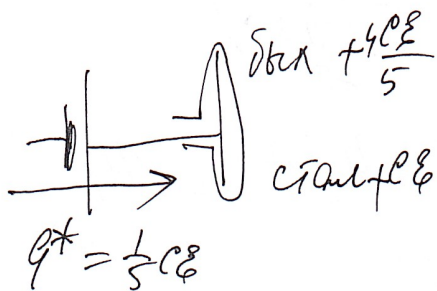 был +4Cℰ/5
стал +Cℰ
q* = 1/5 Cℰ